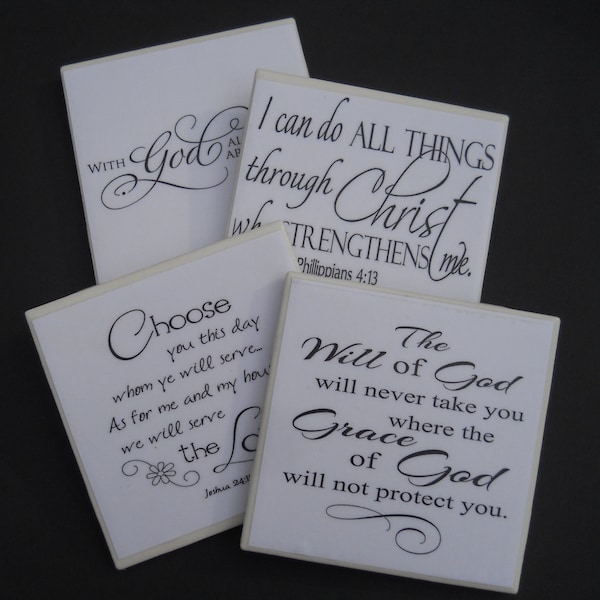 WITH God
I can do ALL THINGS
through Christ
STRENGTHENS me.
Phillippians 4:13
Choose
you this day
whom ye will serve...
As for me and my
we will serve
the
Joshua
The
Will of God
will never take you
where the
Grace
of God
will not protect you.